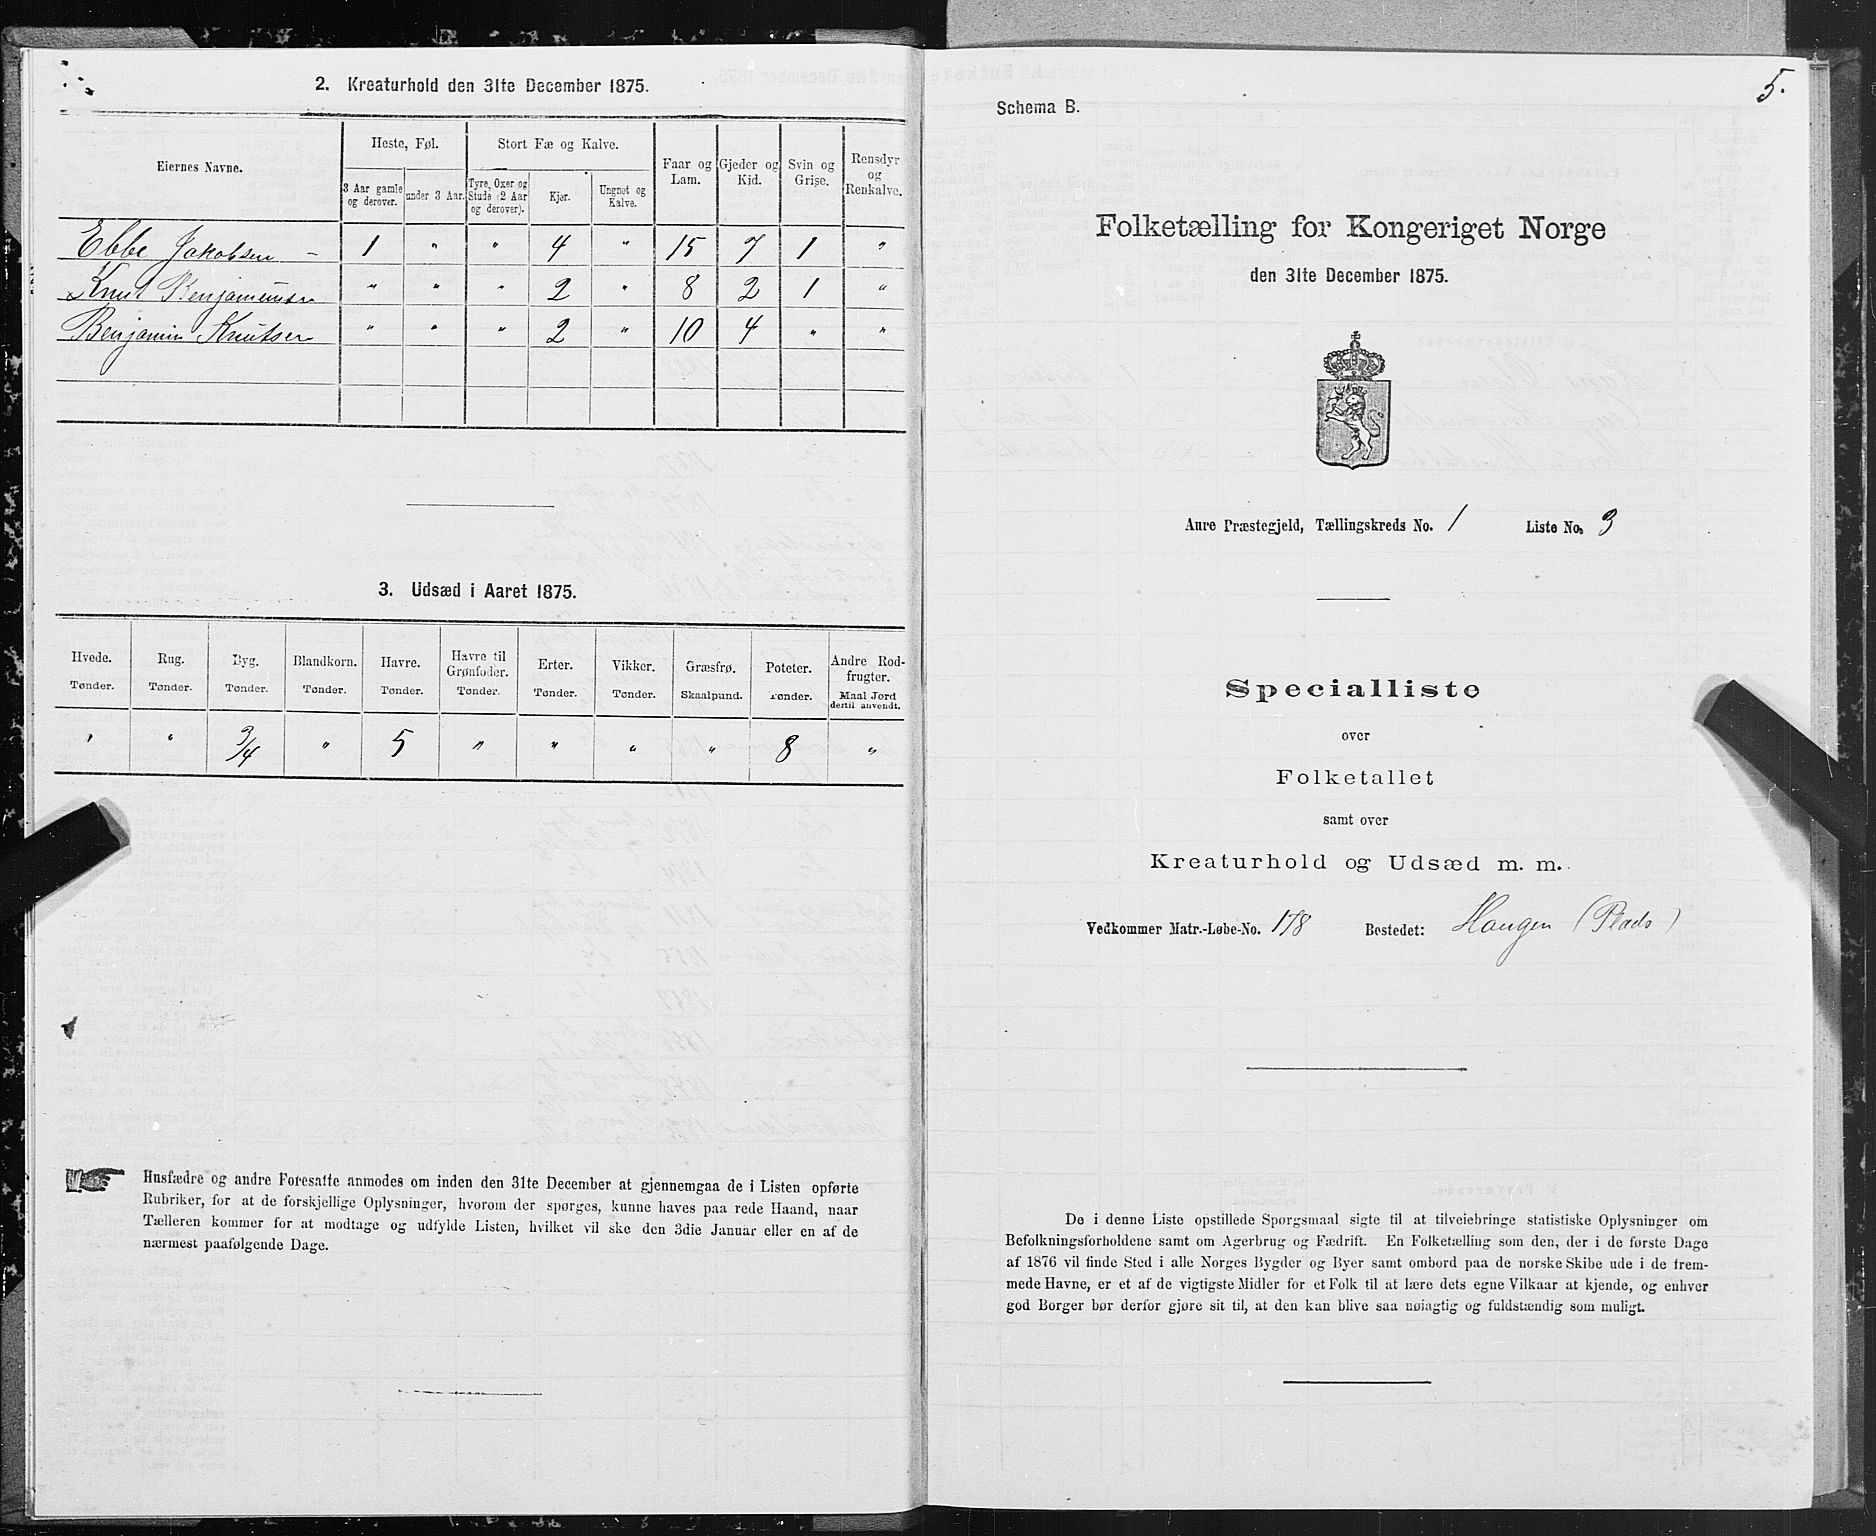 2. Kreaturhold den 31te December 1875.
Eiernes Navne.
Heste, Føl.
Stort Fæ og Kalve.
Faar og Lam.
Gjeder og Kid.
Svin og Grise.
Rensdyr og Renkalve.
3 Aar gamle og derover.
under 3 Aar.
Tyre, Oxer og Stude (2 Aar og derover).
Kjør.
Ungnøt og Kalve.
Ebbe Jakobsen - 1 " " 4 " 15 7 1 "
Knut Benjaminsen " " " 2 " 8 2 1 "
Benjamin Knutsen " " " 2 " 10 4 " "
3. Udsæd i Aaret 1875.
Hvede. Rug. Byg. Blandkorn. Havre. Havre til Grønfoder. Erter. Vikker. Græsfrø. Poteter. Andre Rodfrugter.
Tønder. Tønder. Tønder. Tønder. Tønder. Tønder. Tønder. Tønder. Skaalpund. Tønder. Maal Jord dertil anvendt.
" " 3/4 " 5 " " " " 8 "
Husfædre og andre Foresatte anmodes om inden den 31te December at gjennemgaa de i Listen opførte
Rubriker, for at de forskjellige Oplysninger, hvorom der spørges, kunne haves paa rede Haand, naar
Tælleren kommer for at modtage og udfylde Listen, hvilket vil ske den 3die Januar eller en af de
nærmest paafølgende Dage.
5.
Schema B.
Folketælling for Kongeriget Norge
den 31te December 1875.
Aure Præstegjeld, Tællingskreds No. 1 Liste No. 3
Specialliste
over
Folketallet
samt over
Kreaturhold og Udsæd m. m.
Vedkommer Matr.-Løbe-No. 178 Bostedet: Haugen (Plads)
De i denne Liste opstillede Spørgsmaal sigte til at tilveiebringe statistiske Oplysninger om
Befolkningsforholdene samt om Agerbrug og Fædrift. En Folketælling som den, der i de første Dage
af 1876 vil finde Sted i alle Norges Bygder og Byer samt ombord paa de norske Skibe ude i de frem-
mede Havne, er et af de vigtigste Midler for et Folk til at lære dets egne Vilkaar at kjende, og enhver
god Borger bør derfor gjøre sit til, at den kan blive saa nøiagtig og fuldstændig som muligt.